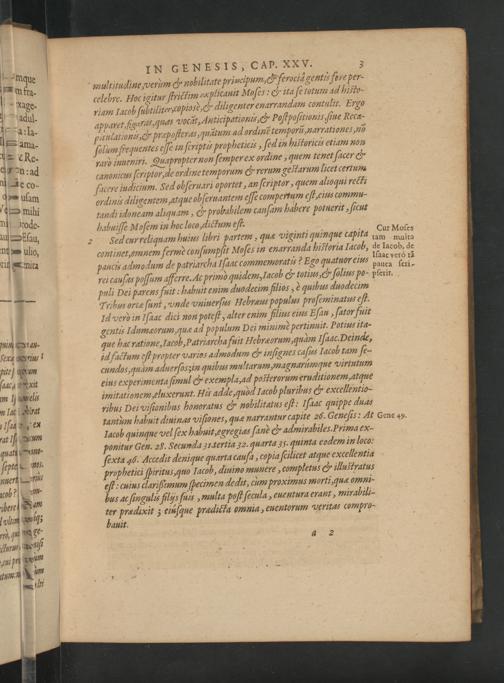 IN GENESIS, CAP. XXV. 3
multitudine, verùm & nobilitate principum, & ferociâ gentis fore per-
celebre. Hoc igitur strictim explicauit Moses: & ita se totum ad histo-
riam Iacob subtiliter, copiosè, & diligenter enarrandam contulit. Ergo
apparet, figuras, quas vocãt, Anticipationis, & Postpositionis, siue Reca-
pitulationis, & præposteras, quãtum ad ordinẽ temporũ, narrationes, nõ
solum frequentes esse in scriptis propheticis, sed in historicis etiam non
rarò inueniri. Quapropter non semper ex ordine, quem tenet sacer &
canonicus scriptor, de ordine temporum & rerum gestarum licet certum
facere iudicium. Sed obseruari oportet, an scriptor, quem alioqui rectè
ordinis diligentem, atque obseruantem esse compertum est, eius commu-
tandi idoneam aliquam, & probabilem causam habere potuerit, sicut
habuisse Mosem in hoc loco, dictum est.
2 Sed cur reliquam huius libri partem, quæ viginti quinque capita
continet, omnem fermè consumpsit Moses in enarranda historia Iacob,
paucis admodum de patriarcha Isaac commemoratis? Ego quatuor eius
rei causas possum afferre. Ac primò quidem, Iacob & totius, & solius po-
puli Dei parens fuit: habuit enim duodecim filios, è quibus duodecim
Tribus ortæ sunt, vnde vniuersus Hebræus populus proseminatus est.
Id verò in Isaac dici non potest, alter enim filius eius Esau, sator fuit
gentis Idumæorum, quæ ad populum Dei minimè pertinuit. Potius ita-
que hac ratione, Iacob, Patriarcha fuit Hebræorum, quàm Isaac. Deinde,
id factum est propter varios admodum & insignes casus Iacob tam se-
cundos, quàm aduersos; in quibus multarum, magnarumque virtutum
eius experimenta simul & exempla, ad posterorum eruditionem, atque
imitationem, eluxerunt. His adde, quòd Iacob pluribus & excellentio-
ribus Dei visionibus honoratus & nobilitatus est: Isaac quippe duas
tantùm habuit diuinas visiones, quæ narrantur capite 26. Genesis: At
Iacob quinque vel sex habuit, egregias sanè & admirabiles. Prima ex-
ponitur Gen. 28. Secunda 31. tertia 32. quarta 35. quinta eodem in loco:
sexta 46. Accedit denique quarta causa, copia scilicet atque excellentia
prophetici spiritus, quo Iacob, diuino munere, completus & illustratus
est: cuius clarissimum specimen dedit, cùm proximus morti, quæ omni-
bus ac singulis filijs suis, multa post secula, euentura erant, mirabili-
ter prædixit; eiúsque prædicta omnia, euentorum veritas compro-
bauit.
a 2
Cur Moses
tam multa
de Iacob, de
Isaac verò tã
pauca scri-
pserit.
Gene 49.